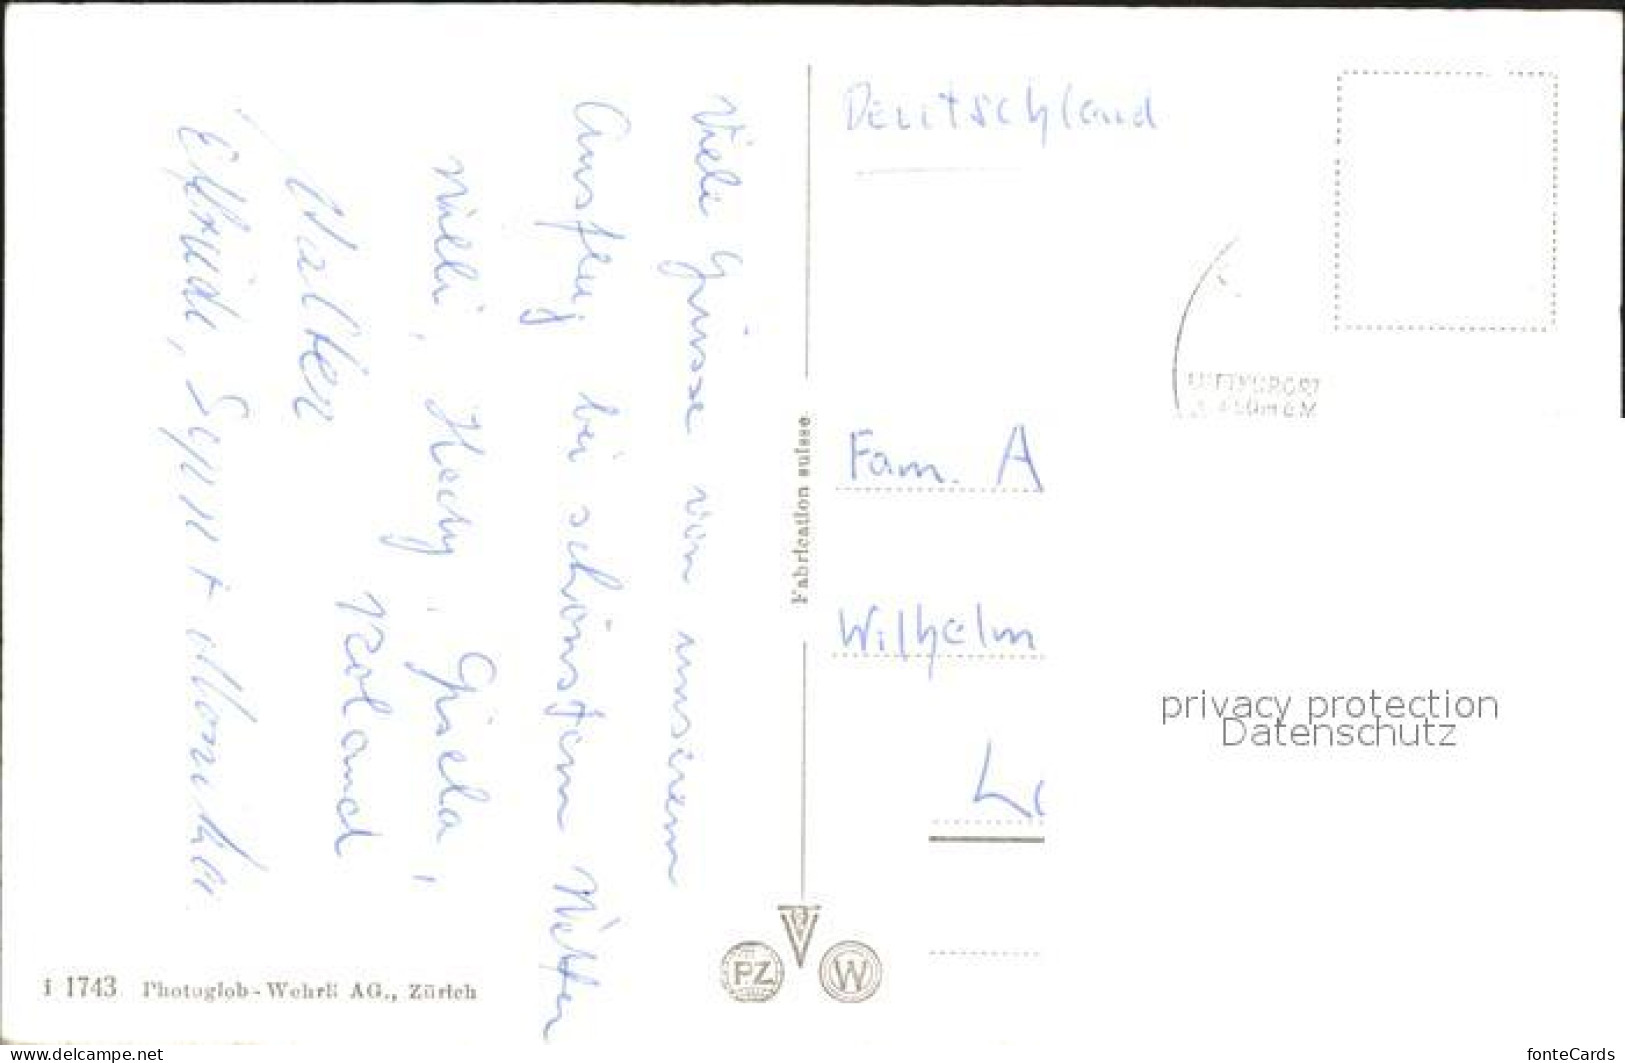 Viele Grüsse von unserem
Ausflug bei schönstem Wetter
Willi, Hedy, Gisela,
Roland
Walter
Elfriede, Sepp + Monika
Deutschland
Fam. A
Wilhelm
Fabrication suisse
PZ
W
i 1743 Photoglob-Wehrli AG., Zürich
privacy protection
Datenschutz
www.delcampe.net
fonteCards